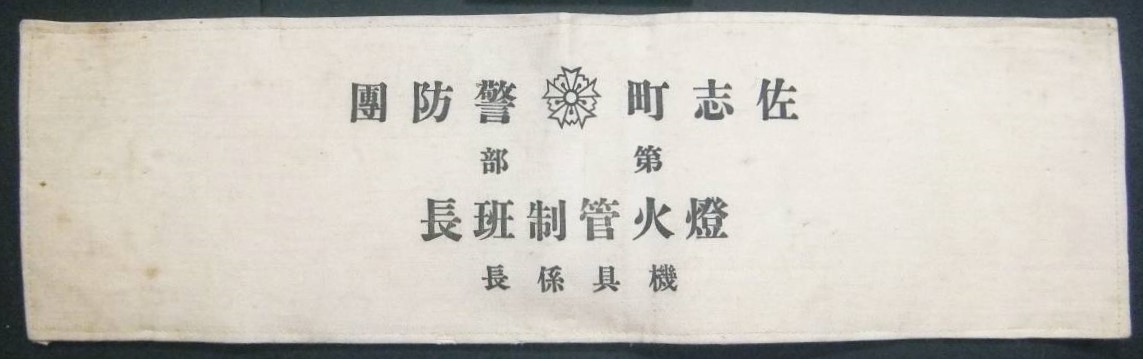 佐志町警防團
第　部
燈火管制班長
機具係長